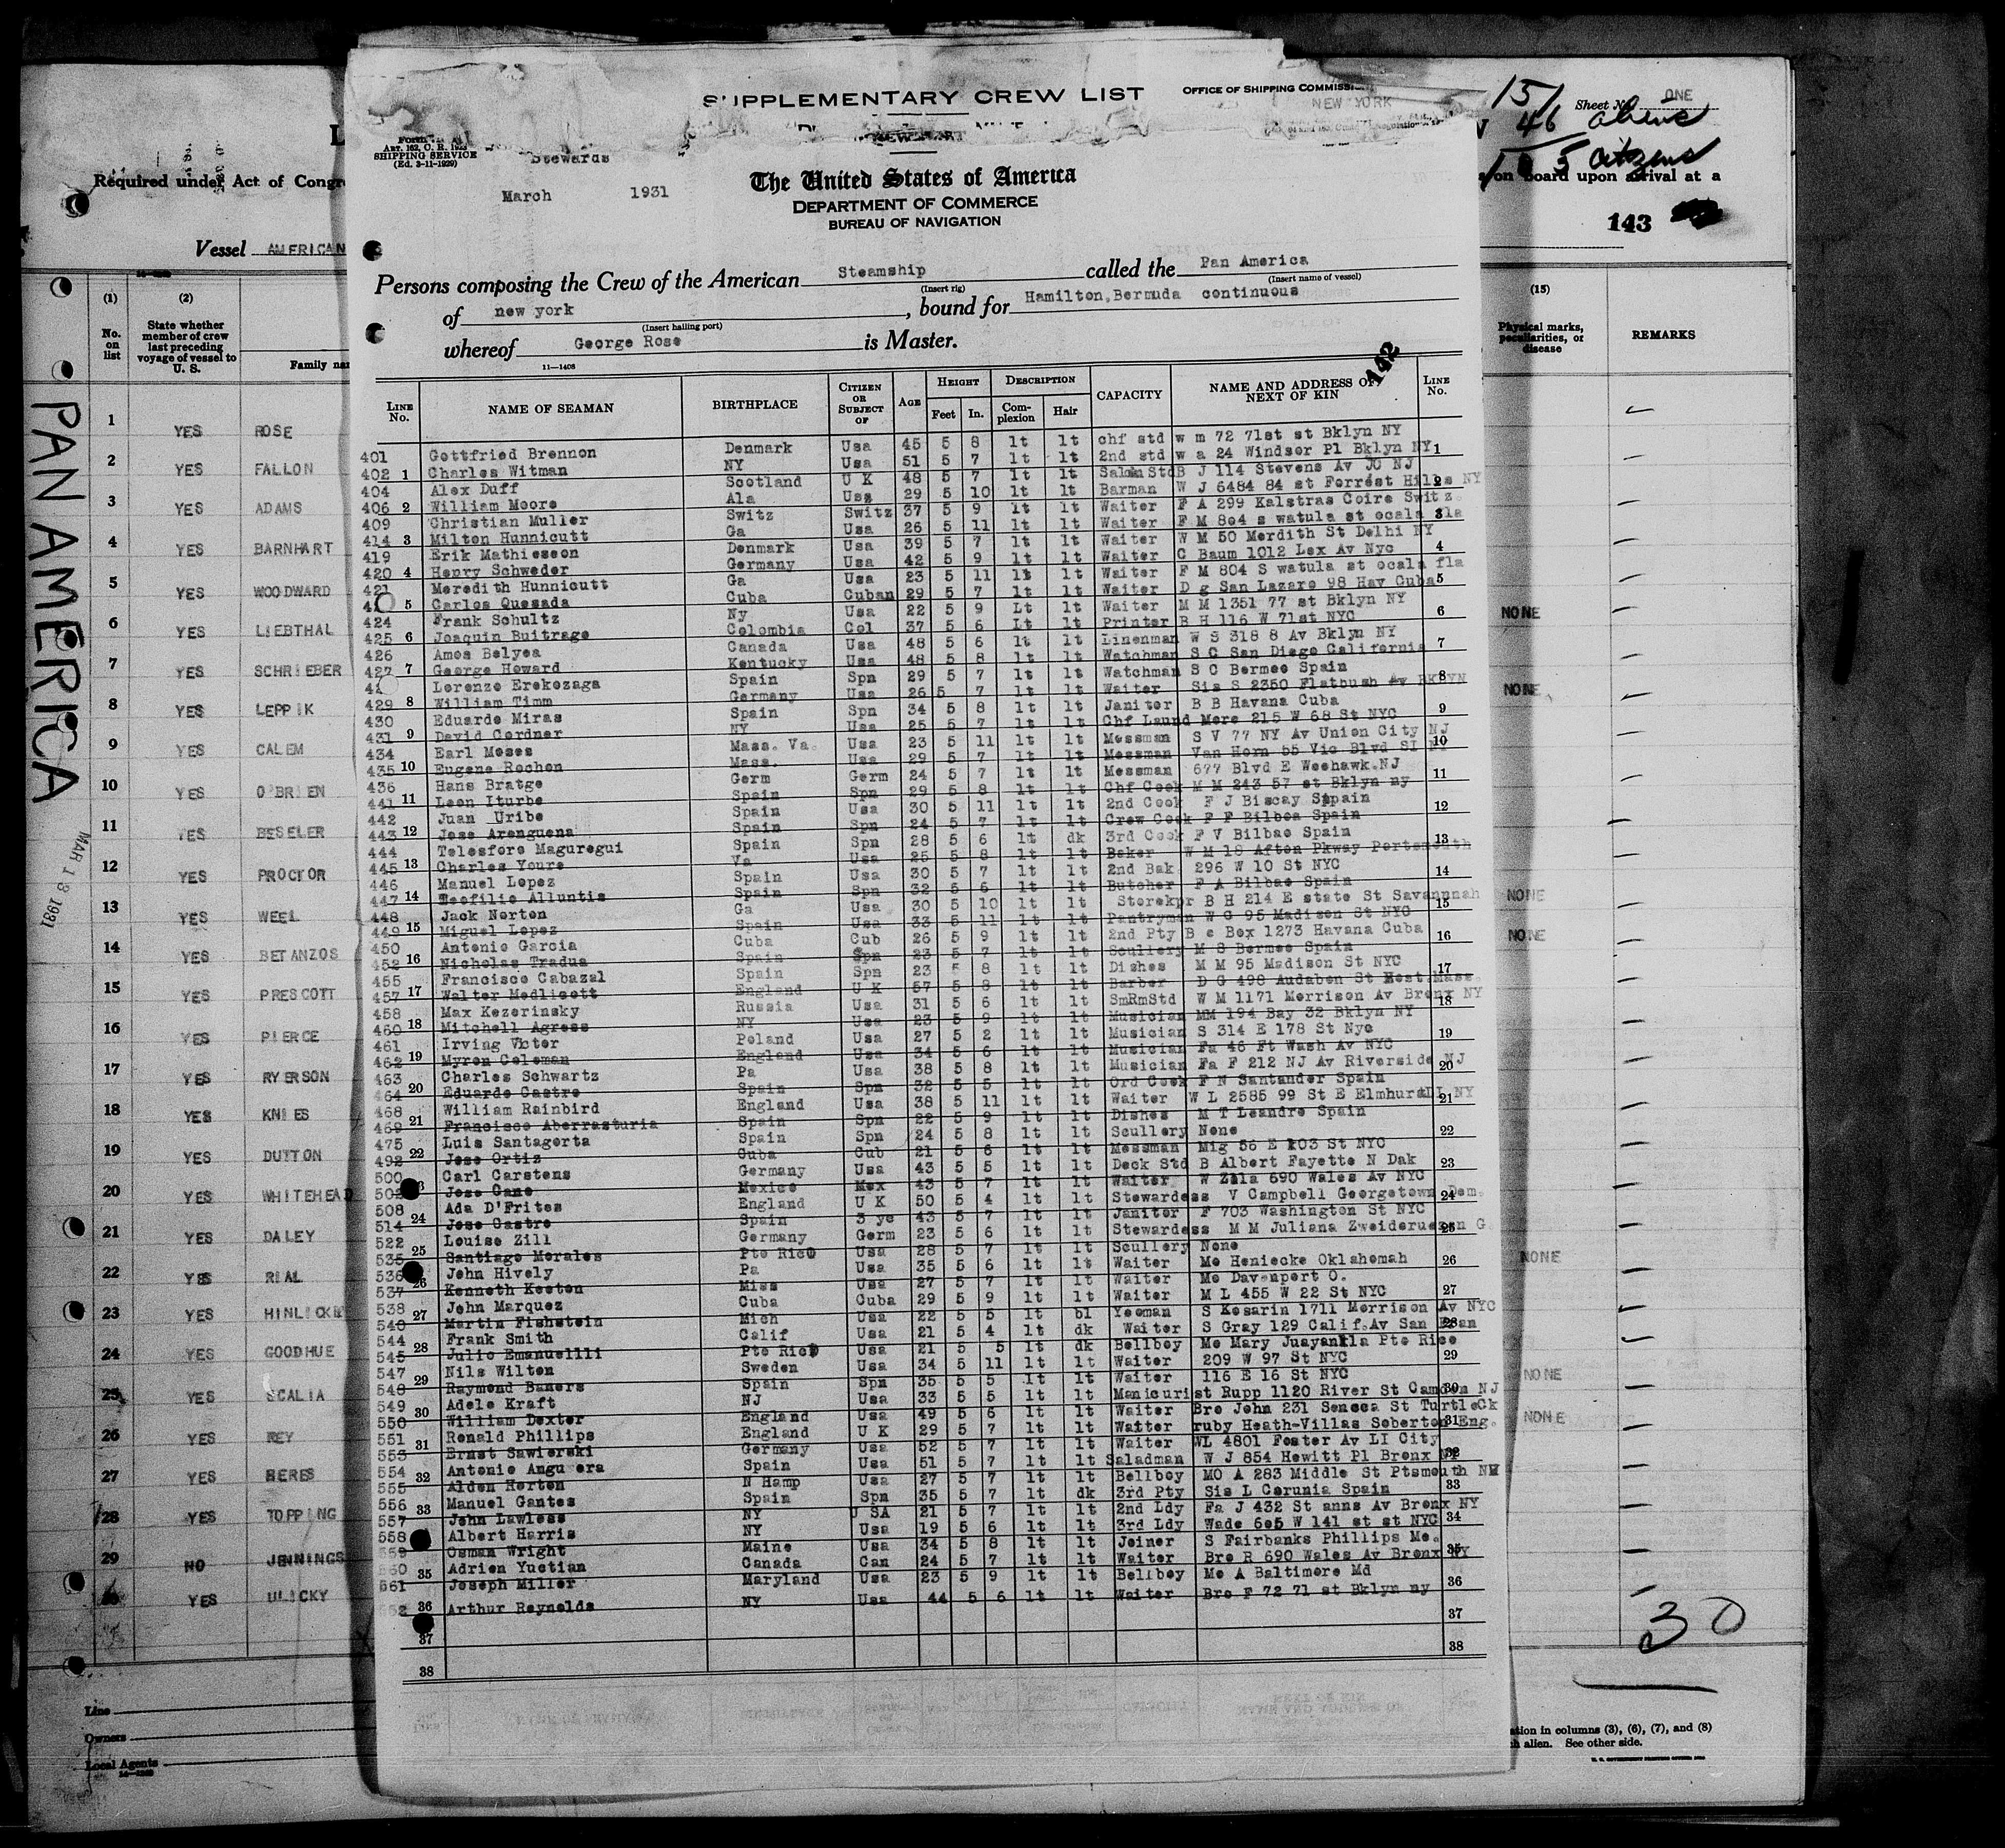 SUPPLEMENTARY CREW LIST
OFFICE OF SHIPPING
NEW YORK
ART. 162, C. R. 1923
SHIPPING SERVICE
(Ed. 3-11-1929)
Stewards
March 1931
The United States of America
DEPARTMENT OF COMMERCE
BUREAU OF NAVIGATION
Persons composing the Crew of the American Steamship called the Pan America
(Insert rig) (Insert name of vessel)
of new york, bound for Hamilton, Bermuda continuous
(Insert hailing port)
whereof George Rose is Master.
11—1408
142
LINE No. NAME OF SEAMAN BIRTHPLACE CITIZEN OR SUBJECT OF AGE HEIGHT Feet In. DESCRIPTION Complexion Hair CAPACITY NAME AND ADDRESS OF NEXT OF KIN LINE No.
401 Gottfried Brennon Denmark Usa 45 5 8 lt lt chf std w m 72 71st st Bklyn NY
402 1 Charles Witman NY Usa 51 5 7 lt lt 2nd std w a 24 Windsor Pl Bklyn NY 1
404 Alex Duff Scotland U K 48 5 7 lt lt Salon Std B J 114 Stevens Av JC NJ
406 2 William Moore Ala Usa 29 5 10 lt lt Barman W J 6484 84 st Forrest Hills NY
409 Christian Muller Switz Switz 37 5 9 lt lt Waiter F A 299 Kalstras Coire Switz.
414 3 Milton Hunnicutt Ga Usa 26 5 11 lt lt Waiter F M 804 s watula st ocala fla
419 Erik Mathieseon Denmark Usa 39 5 7 lt lt Waiter W M 50 Merdith St Delhi NY
420 4 Henry Schweder Germany Usa 42 5 9 lt lt Waiter C Baum 1012 Lex Av Nyc 4
421 Meredith Hunnicutt Ga Usa 23 5 11 lt lt Waiter F M 804 S watula st ocala fla
5 Carlos Quesada Cuba Cuban 29 5 7 lt lt Waiter D g San Lazaro 98 Hav Cuba 5
424 Frank Schultz Ny Usa 22 5 9 Lt lt Waiter M M 1351 77 st Bklyn NY
425 6 Joaquin Buitrago Colombia Col 37 5 6 Lt lt Printer B H 116 W 71st NYC 6
426 Amos Belyea Canada Usa 48 5 6 lt lt Linenman W S 318 8 Av Bklyn NY
427 7 George Howard Kentucky Usa 48 5 8 lt lt Watchman S C San Diego California 7
Lorenzo Erekozaga Spain Spn 29 5 7 lt lt Watchman S C Bermeo Spain
429 8 William Timm Germany Usa 26 5 7 lt lt Waiter Sis S 2350 Flatbush Av BKLYN 8
430 Eduardo Miras Spain Spn 34 5 8 lt lt Janitor B B Havana Cuba
431 9 David Cordner NY Usa 25 5 7 lt lt Chf Laund Mere 215 W 68 St NYC 9
434 Earl Moses Mass. Va. Usa 23 5 11 lt lt Messman S V 77 NY Av Union City NJ
435 10 Eugene Rochon Mass. Usa 29 5 7 lt lt Messman Van Horn 55 Vic Blvd SI 10
436 Hans Bratge Germ Germ 24 5 7 lt lt Messman 677 Blvd E Weehawk.NJ
441 11 Leon Iturbe Spain Spn 29 5 8 lt lt Chf Cook M M 243 57 st Bklyn ny 11
442 Juan Uribe Spain Usa 30 5 11 lt lt 2nd Cook F J Biscay Spain
443 12 Jose Arenguena Spain Spn 24 5 7 lt lt Crew Cook F F Bilboa Spain 12
444 Telesforo Maguregui Spain Spn 28 5 6 lt dk 3rd Cook F V Bilbao Spain
445 13 Charles Youre Va Usa 25 5 8 lt lt Baker W M 18 Afton Pkway Portsmouth 13
446 Manuel Lopez Spain Usa 30 5 7 lt lt 2nd Bak 296 W 10 St NYC
447 14 Teofilio Alluntis Spain Spn 32 5 6 lt lt Butcher F A Bilbao Spain 14
448 Jack Norton Ga Usa 30 5 10 lt lt Storekpr B H 214 E state St Savannnah
449 15 Miguel Lopez Spain Usa 33 5 11 lt lt Pantryman W G 95 Madison St NYC 15
450 Antonio Garcia Cuba Cub 26 5 9 lt lt 2nd Pty B c Box 1273 Havana Cuba
452 16 Nicholas Tradua Spain Spn 23 5 7 lt lt Scullery M S Bermeo Spain 16
455 Francisco Cabazal Spain Spn 23 5 8 lt lt Dishes M M 95 Madison St NYC
457 17 Walter Medlicott England U K 57 5 8 lt lt Barber D G 498 Audabon St Mass. 17
458 Max Kezerinsky Russia Usa 31 5 6 lt lt SmRmStd W M 1171 Morrison Av Bronx NY
460 18 Mitchell Agress NY Usa 23 5 9 lt lt Musician MM 194 Bay 32 Bklyn NY 18
461 Irving Victor Poland Usa 27 5 2 lt lt Musician S 314 E 178 St Nyc
462 19 Myron Coleman England Usa 34 5 6 lt lt Musician Fa 46 Ft Wash Av NYC 19
463 Charles Schwartz Pa Usa 38 5 8 lt lt Musician Fa F 212 NJ Av Riverside NJ
464 20 Eduardo Castro Spain Spn 32 5 5 lt lt Ord Cook F N Santander Spain 20
468 William Rainbird England Usa 38 5 11 lt lt Waiter W L 2585 99 St E Elmhurst LI NY
469 21 Francisco Aberrasturia Spain Spn 22 5 9 lt lt Dishes M T Leandro Spain 21
475 Luis Santagorta Spain Spn 24 5 8 lt lt Scullery None
492 22 Jose Ortiz Cuba Cub 21 5 6 lt lt Messman Mig 56 E 103 St NYC 22
500 Carl Carstens Germany Usa 43 5 5 lt lt Deck Std B Albert Fayette N Dak
Jose Cano Mexico Mex 43 5 7 lt lt Waiter W Zila 690 Wales Av NYC 23
508 Ada D'Frites England U K 50 5 4 lt lt Stewardess V Campbell Georgetown Dem.
514 24 Jose Castro Spain 3 ye 43 5 7 lt lt Janitor F 703 Washington St NYC 24
522 Louise Zill Germany Germ 23 5 6 lt lt Stewardess M M Juliana G
535 25 Santiago Morales Pto Rico Usa 28 5 7 lt lt Scullery None 25
536 John Hively Pa Usa 35 5 6 lt lt Waiter Mo Heniecke Oklahomah
537 26 Kenneth Keeton Miss Usa 27 5 7 lt lt Waiter Mo Davenport O. 26
538 John Marquez Cuba Cuba 29 5 9 lt lt Waiter M L 455 W 22 St NYC
540 27 Martin Fishstein Mich Usa 22 5 5 lt bl Yeoman S Kosarin 1711 Morrison Av NYC 27
544 Frank Smith Calif Usa 21 5 4 lt dk Waiter S Gray 129 Calif.Av San Fran
545 28 Julio Emanuellli Pto Rico Usa 21 5 5 lt dk Bellboy Mo Mary Juayanilla Pto Rico 28
547 Nils Wilton Sweden Usa 34 5 11 lt lt Waiter 209 W 97 St NYC
548 29 Raymond Baners Spain Spn 35 5 5 lt lt Waiter 116 E 16 St NYC 29
549 Adele Kraft NJ Usa 33 5 5 lt lt Manicurist Rupp 1120 River St Camden NJ
550 30 William Dexter England Usa 49 5 6 lt lt Waiter Bro John 231 Seneca St TurtleCk 30
551 Ronald Phillips England U K 29 5 7 lt lt Waiter ruby Heath-Villas Soberton Eng.
553 31 Ernst Sawierski Germany Usa 52 5 7 lt lt Waiter WL 4801 Foster Av LI City 31
554 Antonio Angu era Spain Usa 51 5 7 lt lt Saladman W J 854 Hewitt Pl Bronx NY
555 32 Alden Horton N Hamp Usa 27 5 7 lt lt Bellboy MO A 283 Middle St Ptsmouth NH 32
556 Manuel Gantes Spain Spn 35 5 7 lt dk 3rd Pty Sis L Corunia Spain
557 33 John Lawless NY U SA 21 5 7 lt lt 2nd Ldy Fa J 432 St anns Av Bronx NY 33
558 Albert Harris NY Usa 19 5 6 lt lt 3rd Ldy Wade 605 W 141 st st NYC
559 Osman Wright Maine Usa 34 5 8 lt lt Joiner S Fairbanks Phillips Me. 34
560 Adrien Yuctian Canada Can 24 5 7 lt lt Waiter Bro R 690 Wales Av Bronx NY
561 35 Joseph Miller Maryland Usa 23 5 9 lt lt Bellboy Mo A Baltimore Md 35
36 Arthur Reynolds NY Usa 44 5 6 lt lt Waiter Bro F 72 71 st Bklyn ny 36
37 37
38 38
Required under Act of
Vessel AMERICAN
PAN AMERICA
MAR 18 1931
(1) No. on list
(2) State whether member of crew last preceding voyage of vessel to U. S.
Family
1 YES ROSE
2 YES FALLON
3 YES ADAMS
4 YES BARNHART
5 YES WOODWARD
6 YES LIEBTHAL
7 YES SCHRIEBER
8 YES LEPPIK
9 YES CALEM
10 YES O'BRIEN
11 YES BESELER
12 YES PROCTOR
13 YES WEEL
14 YES BETANZOS
15 YES PRESCOTT
16 YES PIERCE
17 YES RYERSON
18 YES KNIES
19 YES DUTTON
20 YES WHITEHEAD
21 YES DALEY
22 YES RIAL
23 YES HINLICKE
24 YES GOODHUE
25 YES SCALIA
26 YES REY
27 YES BERES
28 YES TOPPING
29 NO JENNINGS
YES ULICKY
Line
Owners
Local Agents
Sheet No. ONE
15
46 aliens
5 citizens
on board upon arrival at a
143
(15)
Physical marks, peculiarities, or disease
REMARKS
NONE
NONE
NONE
NONE
NONE
NONE
NONE
30
in columns (3), (6), (7), and (8)
alien. See other side.